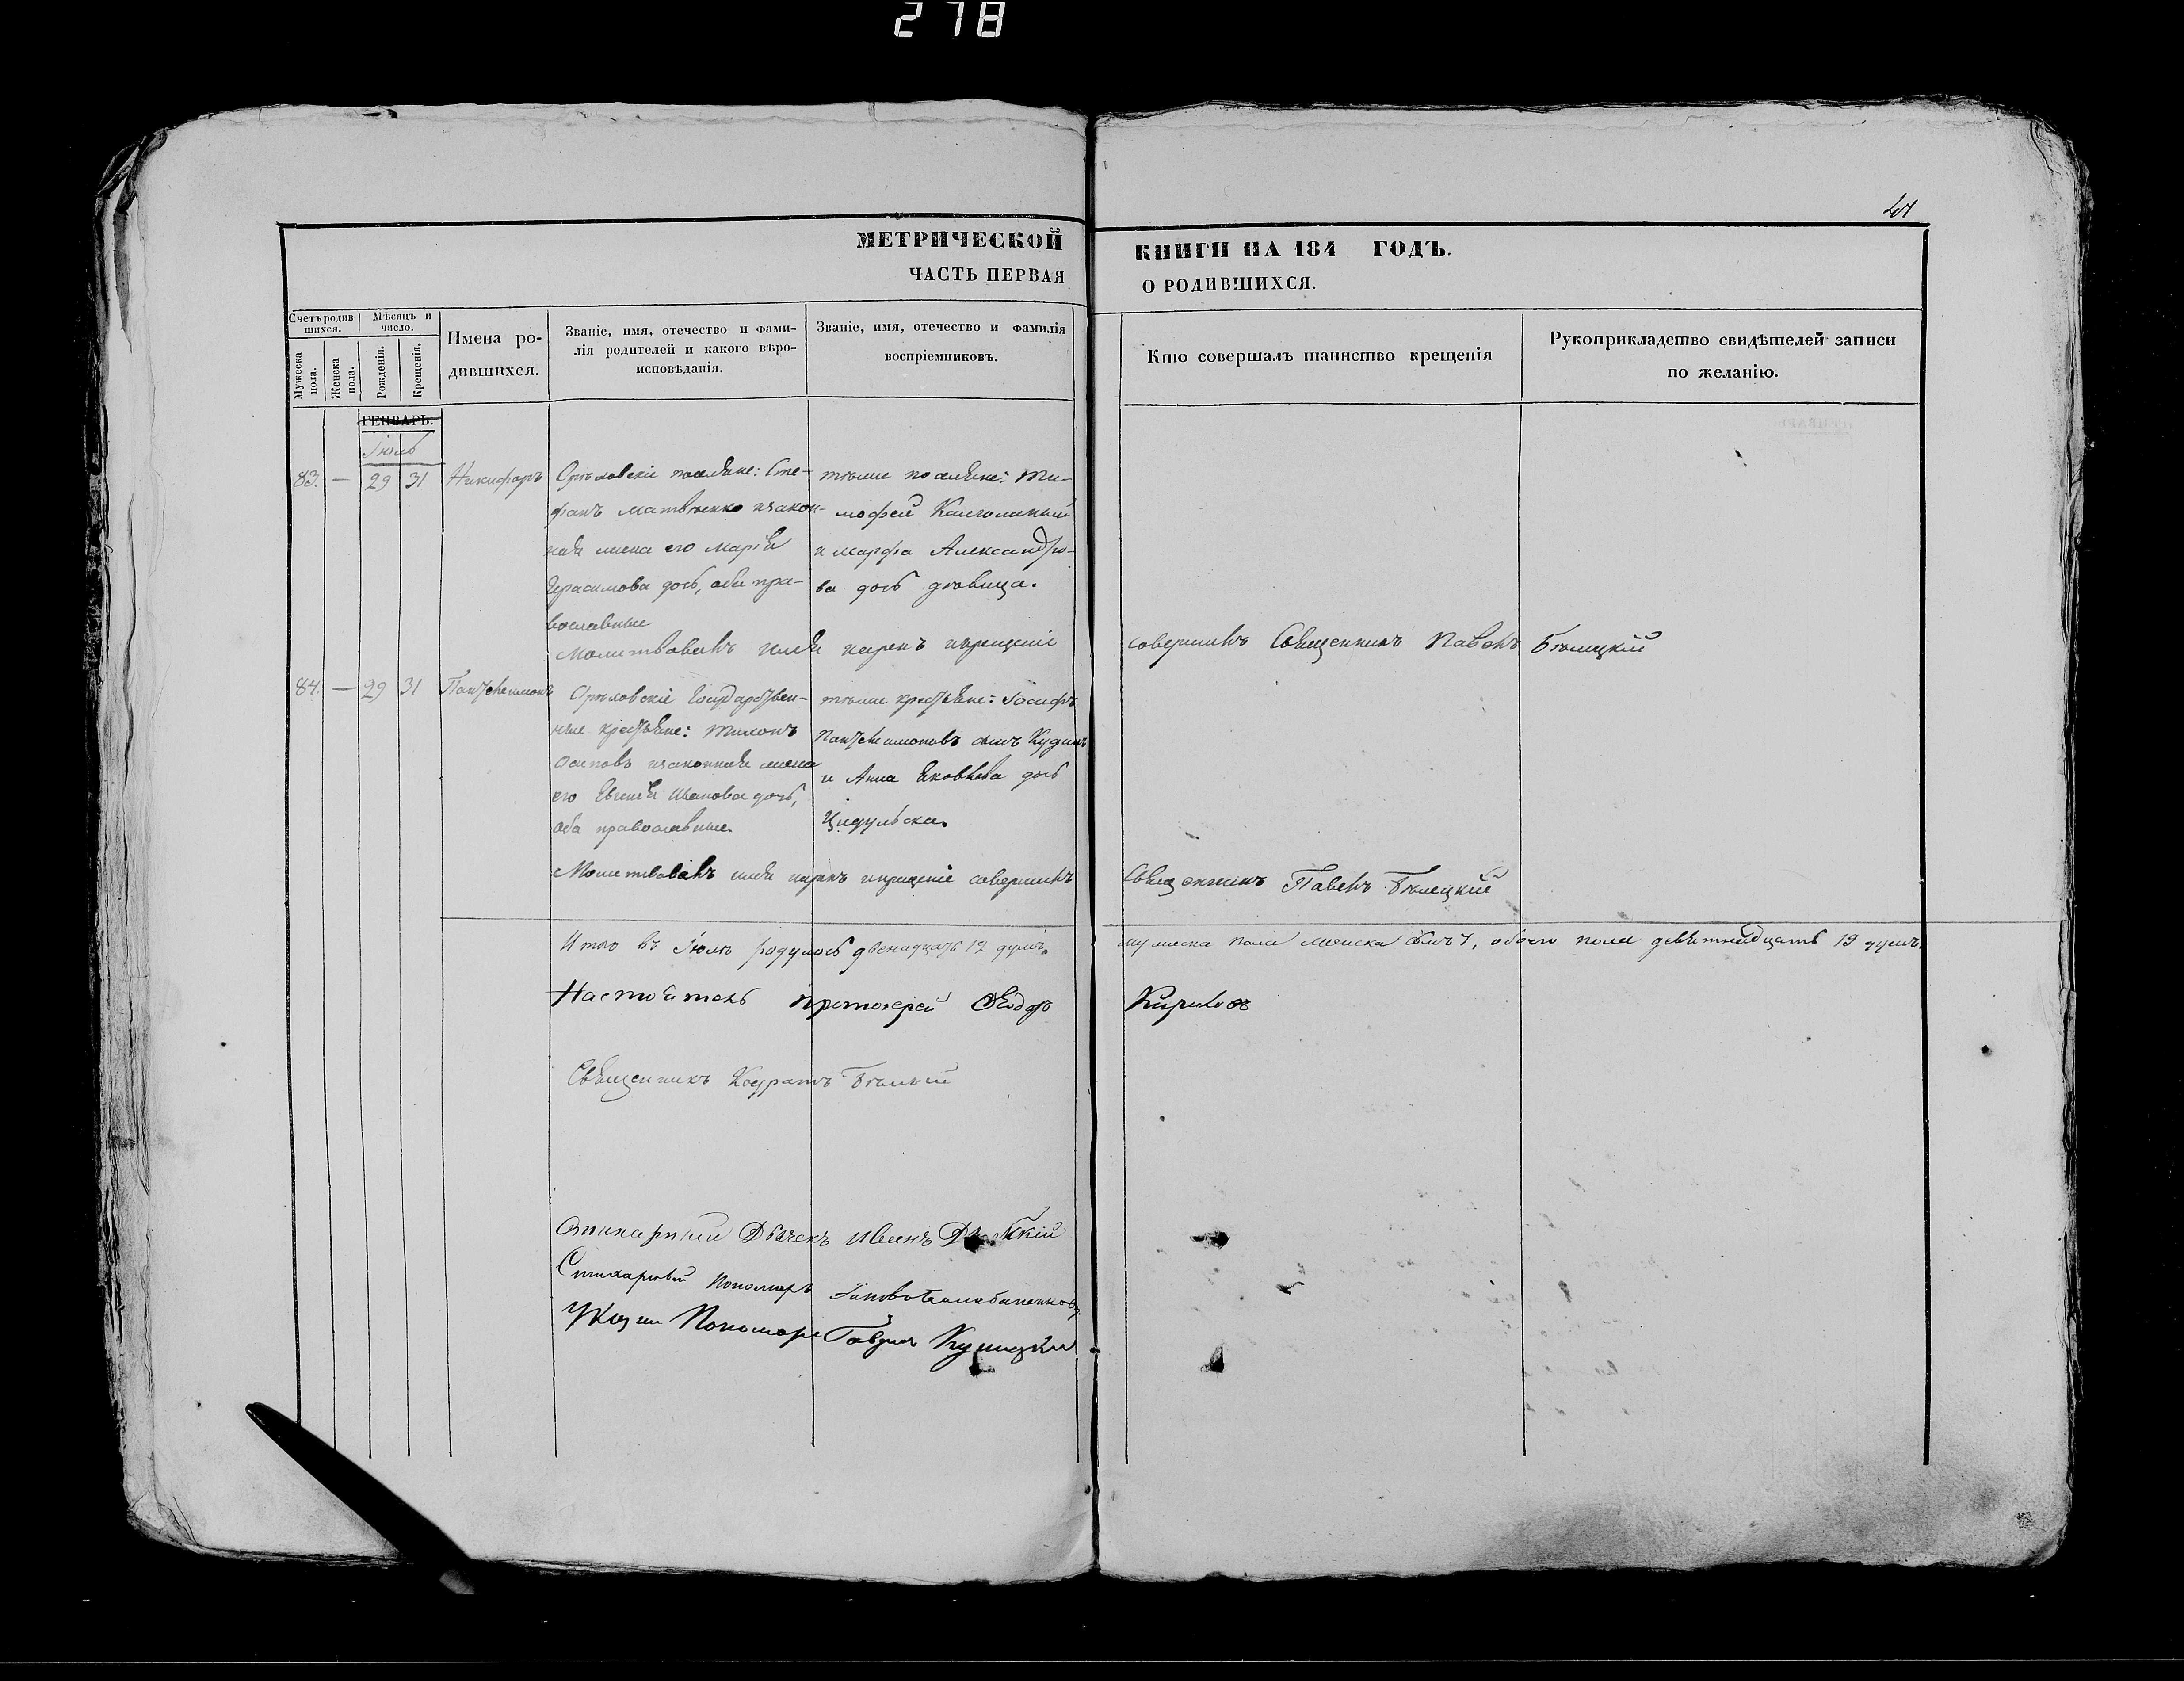 278
МЕТРИЧЕСКОЙ КНИГИ НА 184 ГОДЪ.
ЧАСТЬ ПЕРВАЯ О РОДИВШИХСЯ.
Счетъ родившихся.
Мужеска пола.
Женска пола.
Мѣсяцъ и число.
Рожденія.
Крещенія.
Имена родившихся.
Званіе, имя, отечество и фамилія родителей и какого вѣроисповѣданія.
Званіе, имя, отечество и фамилія воспріемниковъ.
Кто совершалъ таинство крещенія
Рукоприкладство свидѣтелей записи по желанію.
ГЕНВАРЬ.
Іюль
83. — 29 31 Никифоръ
Орѣловскіе поселяне: Сте-
фанъ Матвѣенко и закон-
ная жена его Марія
Герасимова дочь, оба пра-
вославные
тѣже поселяне: Ти-
мофей
и Марфа Александро-
ва дочь дѣвица.
Молитвовалъ имя нарекъ и крещеніе совершилъ Священникъ Павелъ Бѣлецкій
84. — 29 31 Пантелеимонъ
Орѣловскіе Государствен-
ные крестьяне: Тихонъ
Осиповъ и законная жена
его Евгенія Иванова дочь,
оба православные.
тѣже крестьяне: Іосифъ
Пантелеимоновъ сынъ
и Анна Яковлева дочь
Молитвовалъ имя нарекъ и крещеніе совершилъ Священникъ Павелъ Бѣлецкій
Итого въ Іюлѣ родилось двенадцать 12 душъ мужеска пола женска семь 7, обоего пола девятнадцать 19 душъ.
Настоятель протоіерей Ѳеодоръ Кириловъ
Священникъ Кодратъ
Стихарный Дьячекъ Иванъ
Стихарный Пономарь
Пономарь Гавріилъ